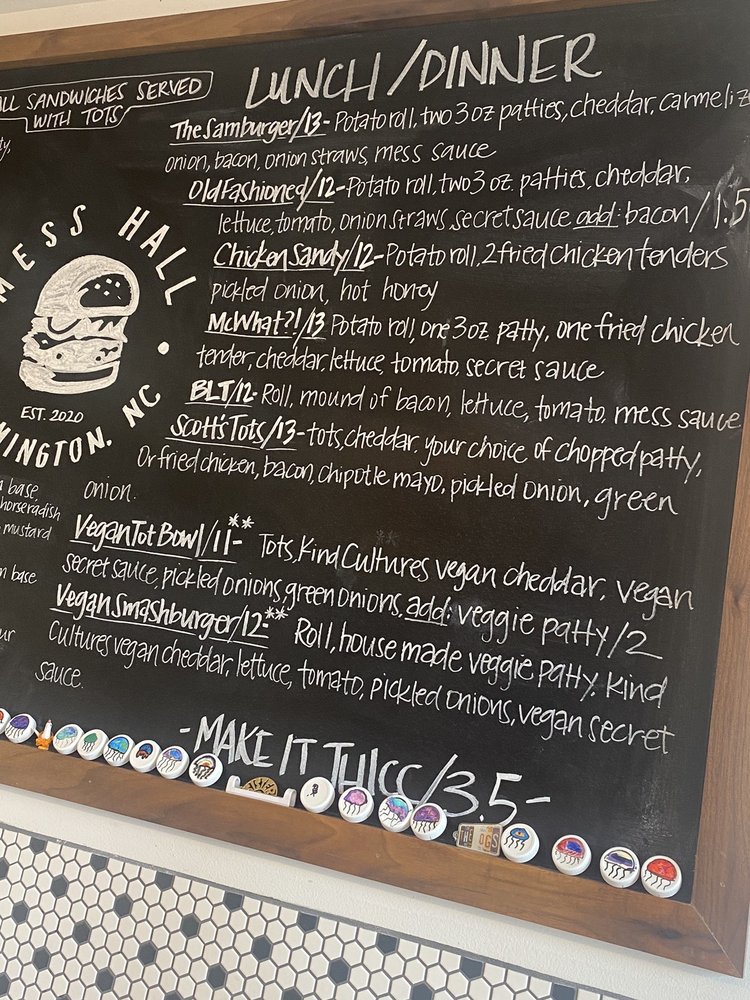 ALL SANDWICHES SERVED
WITH TOTS
LUNCH/DINNER
The Samburger/13- Potato roll, two 3 oz patties, cheddar, carmeliz
onion, bacon, onion straws, mess sauce
Old Fashioned/12- Potato roll, two 3 oz. patties, cheddar,
lettuce, tomato, onion straws, secret sauce add: bacon/1.5
Chicken Sandy/12- Potato roll, 2 fried chicken tenders
pickled onion, hot honey
McWhat?!/13 Potato roll, one 3 oz patty, one fried chicken
tender, cheddar, lettuce, tomato, secret sauce
BLT/12- Roll, mound of bacon, lettuce, tomato, mess sauce
Scott's Tots/13- tots, cheddar, your choice of chopped patty,
Or fried chicken, bacon, chipotle mayo, pickled onion, green
onion.
Vegan Tot Bowl/11-** Tots, Kind Cultures vegan cheddar, vegan
secret sauce, pickled onions, green onions, add: veggie patty/2
Vegan Smashburger/12-** Roll, house made veggie patty, Kind
Cultures vegan cheddar, lettuce, tomato, pickled onions, vegan secret
sauce.
-MAKE IT THICC/3.5-
MESS HALL
EST. 2020
MINGTON, NC
base,
horseradish
mustard
base
THE OGS